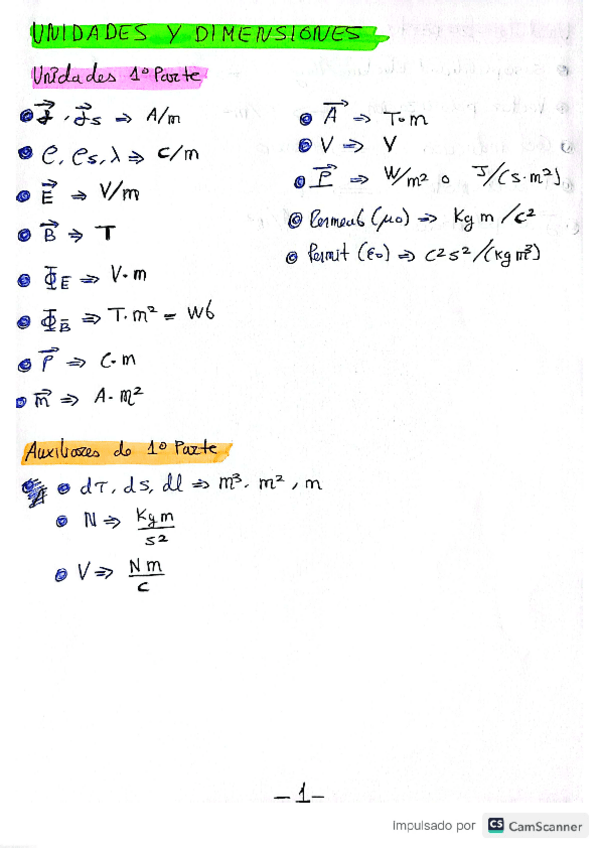 UNIDADES Y DIMENSIONES
Unidades 1º Parte
J⃗, J⃗s ⇒ A/m
ρ, ρs, λ ⇒ C/m
E⃗ ⇒ V/m
B⃗ ⇒ T
ΦE ⇒ V·m
ΦB ⇒ T·m² = Wb
P⃗ ⇒ C·m
m⃗ ⇒ A·m²
A⃗ ⇒ T·m
V ⇒ V
P⃗ ⇒ W/m² o J/(s·m²)
Permeab (μo) ⇒ Kg m /C²
Permit (εo) ⇒ C²s²/(Kg m³)
Auxiliares de 1º Parte
dτ, ds, dl ⇒ m³, m², m
N ⇒ Kg m / s²
V ⇒ N m / C
-1-
Impulsado por CS CamScanner